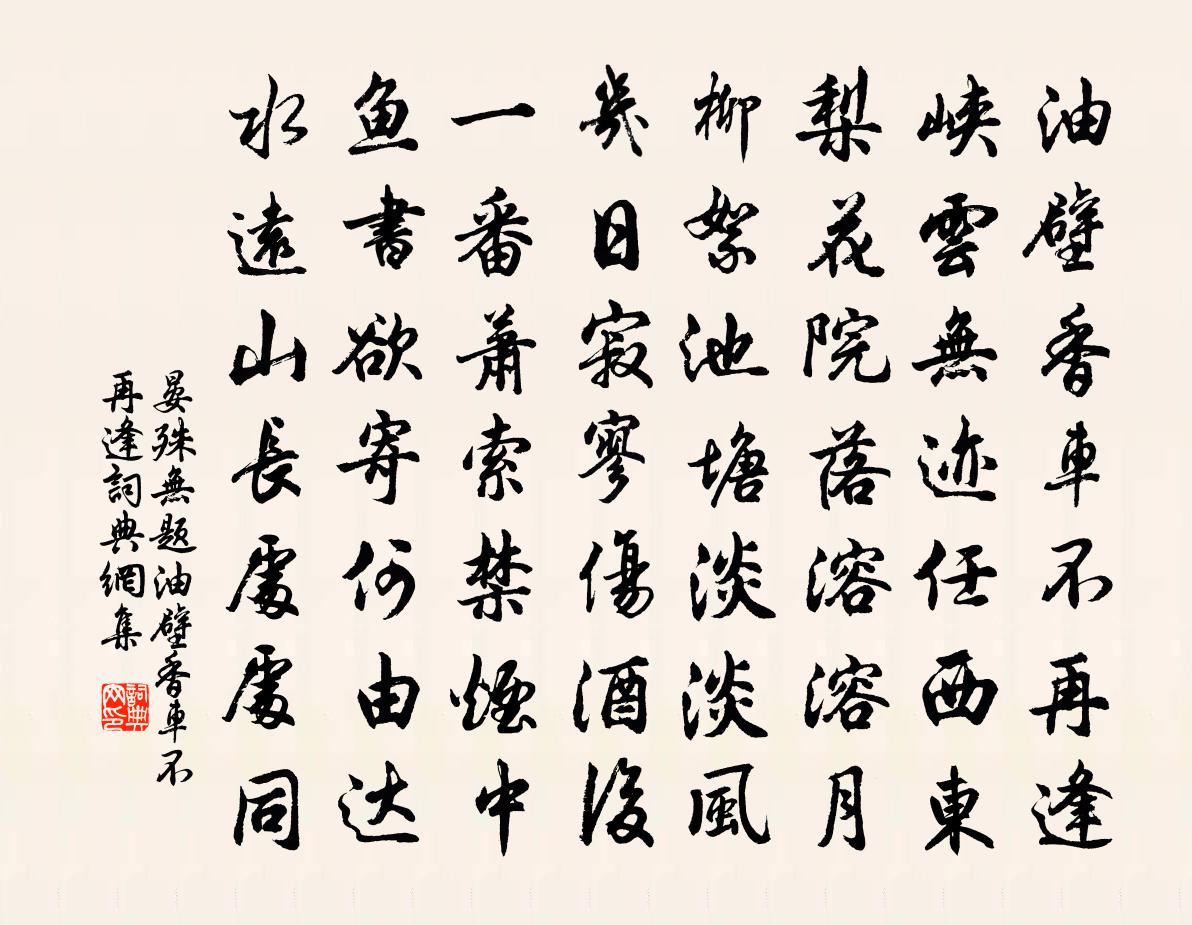 油壁香車不再逢
峽雲無迹任西東
梨花院落溶溶月
柳絮池塘淡淡風
幾日寂寥傷酒後
一番萧索禁煙中
魚書欲寄何由达
水遠山長處處同
晏殊無题油壁香車不
再逢詞典網集
詞典
网印